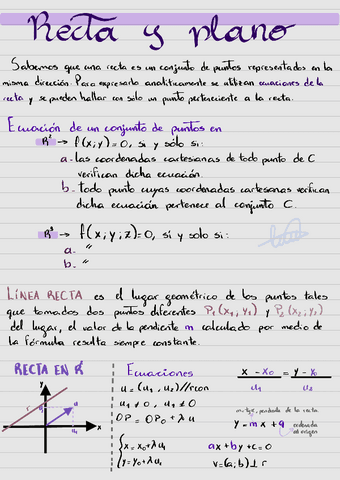 Recta y plano
Sabemos que una recta es un conjunto de puntos representados en la
misma dirección. Para expresarlo analíticamente se utilizan ecuaciones de la
recta y se pueden hallar con solo un punto perteneciente a la recta.
Ecuación de un conjunto de puntos en
R² → f(x,y)=0, si y sólo si:
a. las coordenadas cartesianas de todo punto de C
verifican dicha ecuación.
b. todo punto cuyas coordenadas cartesianas verifican
dicha ecuación pertenece al conjunto C.
R³ → f(x,y,z)=0, si y solo si:
a. "
b. "
LÍNEA RECTA es el lugar geométrico de los puntos tales
que tomados dos puntos diferentes P₁(x₁,y₁) y P₂(x₂,y₂)
del lugar, el valor de la pendiente m calculado por medio de
la fórmula resulta siempre constante.
RECTA EN R²
y
r
x
Ecuaciones
u=(u₁,u₂)//r con
u₁≠0, u₂≠0
OP=OP₀+λu
x=x₀+λu₁
y=y₀+λu₂
x-x₀ = y-y₀
u₁ u₂
pendiente de la recta
y=mx+q ordenada
al origen
ax+by+c=0
v=(a;b)⊥r